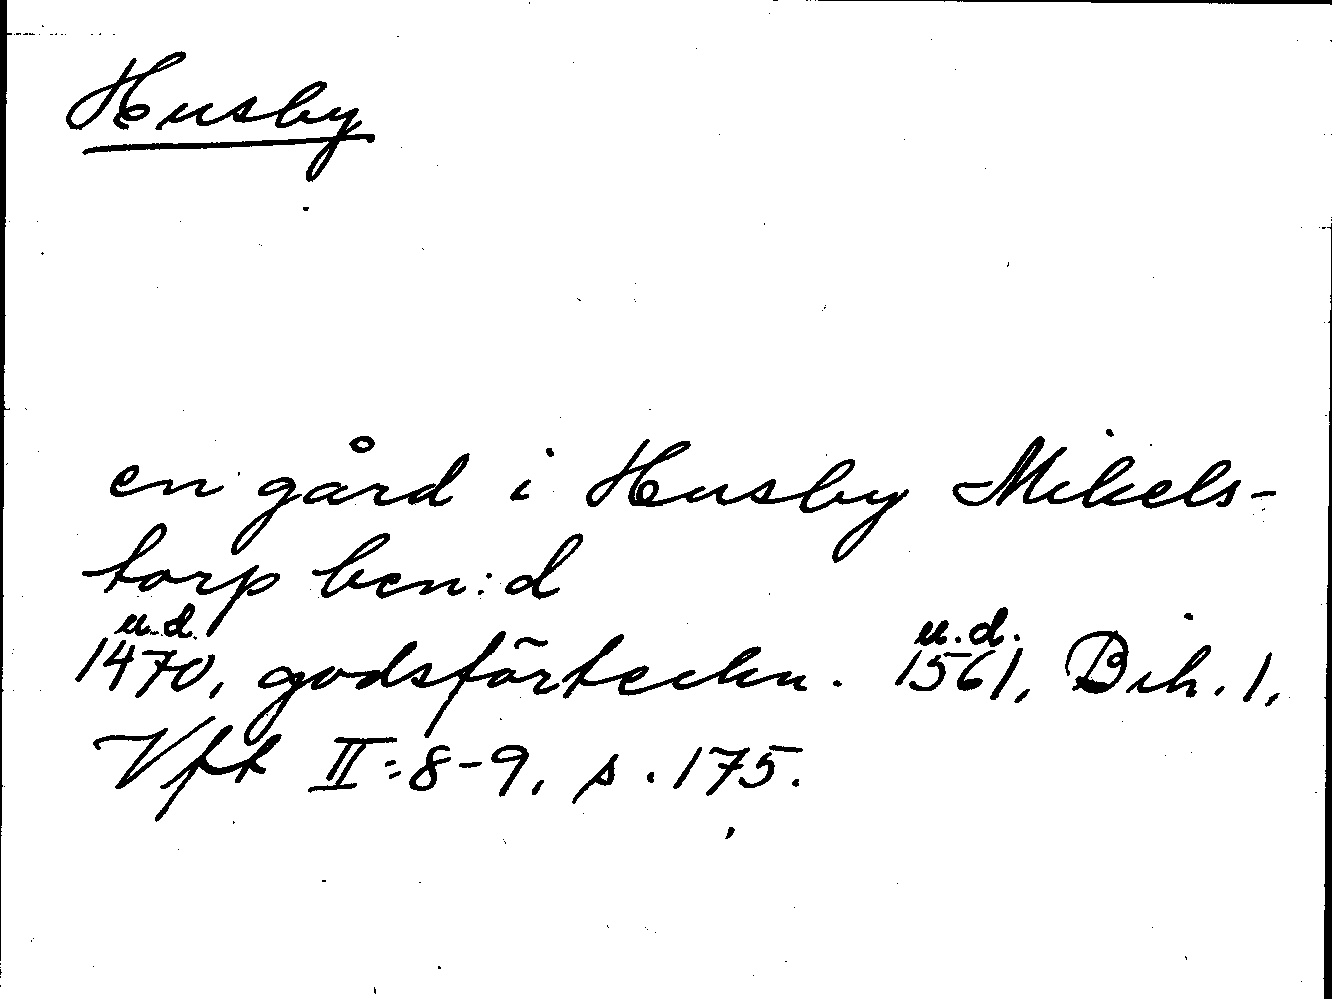 Husby
en gård i Husby Mikels-
torp ben:d
u.d. u.d.
1470, godsförteckn. 1561, Bih. 1,
Vft II:8-9, s. 175.